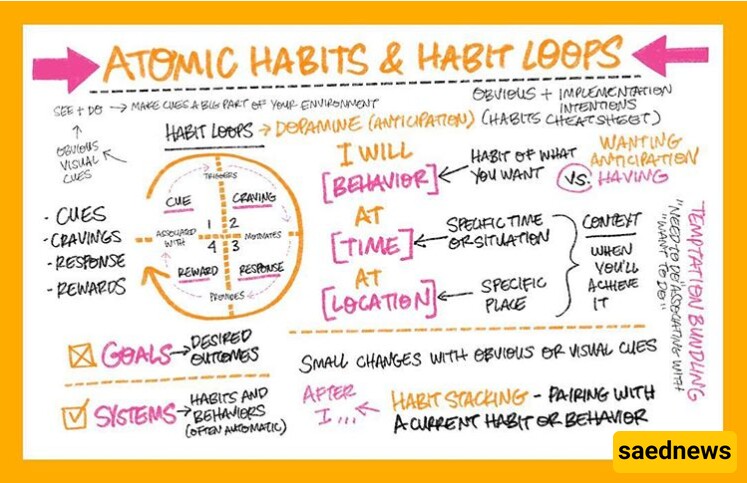 ATOMIC HABITS & HABIT LOOPS
SEE + DO → MAKE CUES A BIG PART OF YOUR ENVIRONMENT
OBVIOUS
VISUAL
CUES
HABIT LOOPS → DOPAMINE (ANTICIPATION)
OBVIOUS + IMPLEMENTATION
INTENTIONS
(HABITS CHEATSHEET)
TRIGGERS
CUE
CRAVING
1
2
ASSOCIATED
WITH
MOTIVATES
4
3
REWARD
RESPONSE
PROVIDES
- CUES
- CRAVINGS
- RESPONSE
- REWARDS
I WILL
[BEHAVIOR]
HABIT OF WHAT
YOU WANT
WANTING
ANTICIPATION
VS: HAVING
AT
[TIME]
SPECIFIC TIME
OR SITUATION
AT
[LOCATION]
SPECIFIC
PLACE
CONTEXT
WHEN
YOU'LL
ACHIEVE
IT
TEMPTATION BUNDLING
"NEED TO DO" ASSOCIATING WITH
"WANT TO DO"
GOALS → DESIRED
OUTCOMES
SYSTEMS → HABITS AND
BEHAVIORS
(OFTEN AUTOMATIC)
SMALL CHANGES WITH OBVIOUS OR VISUAL CUES
AFTER
I...
HABIT STACKING - PAIRING WITH
A CURRENT HABIT OR BEHAVIOR
saednews